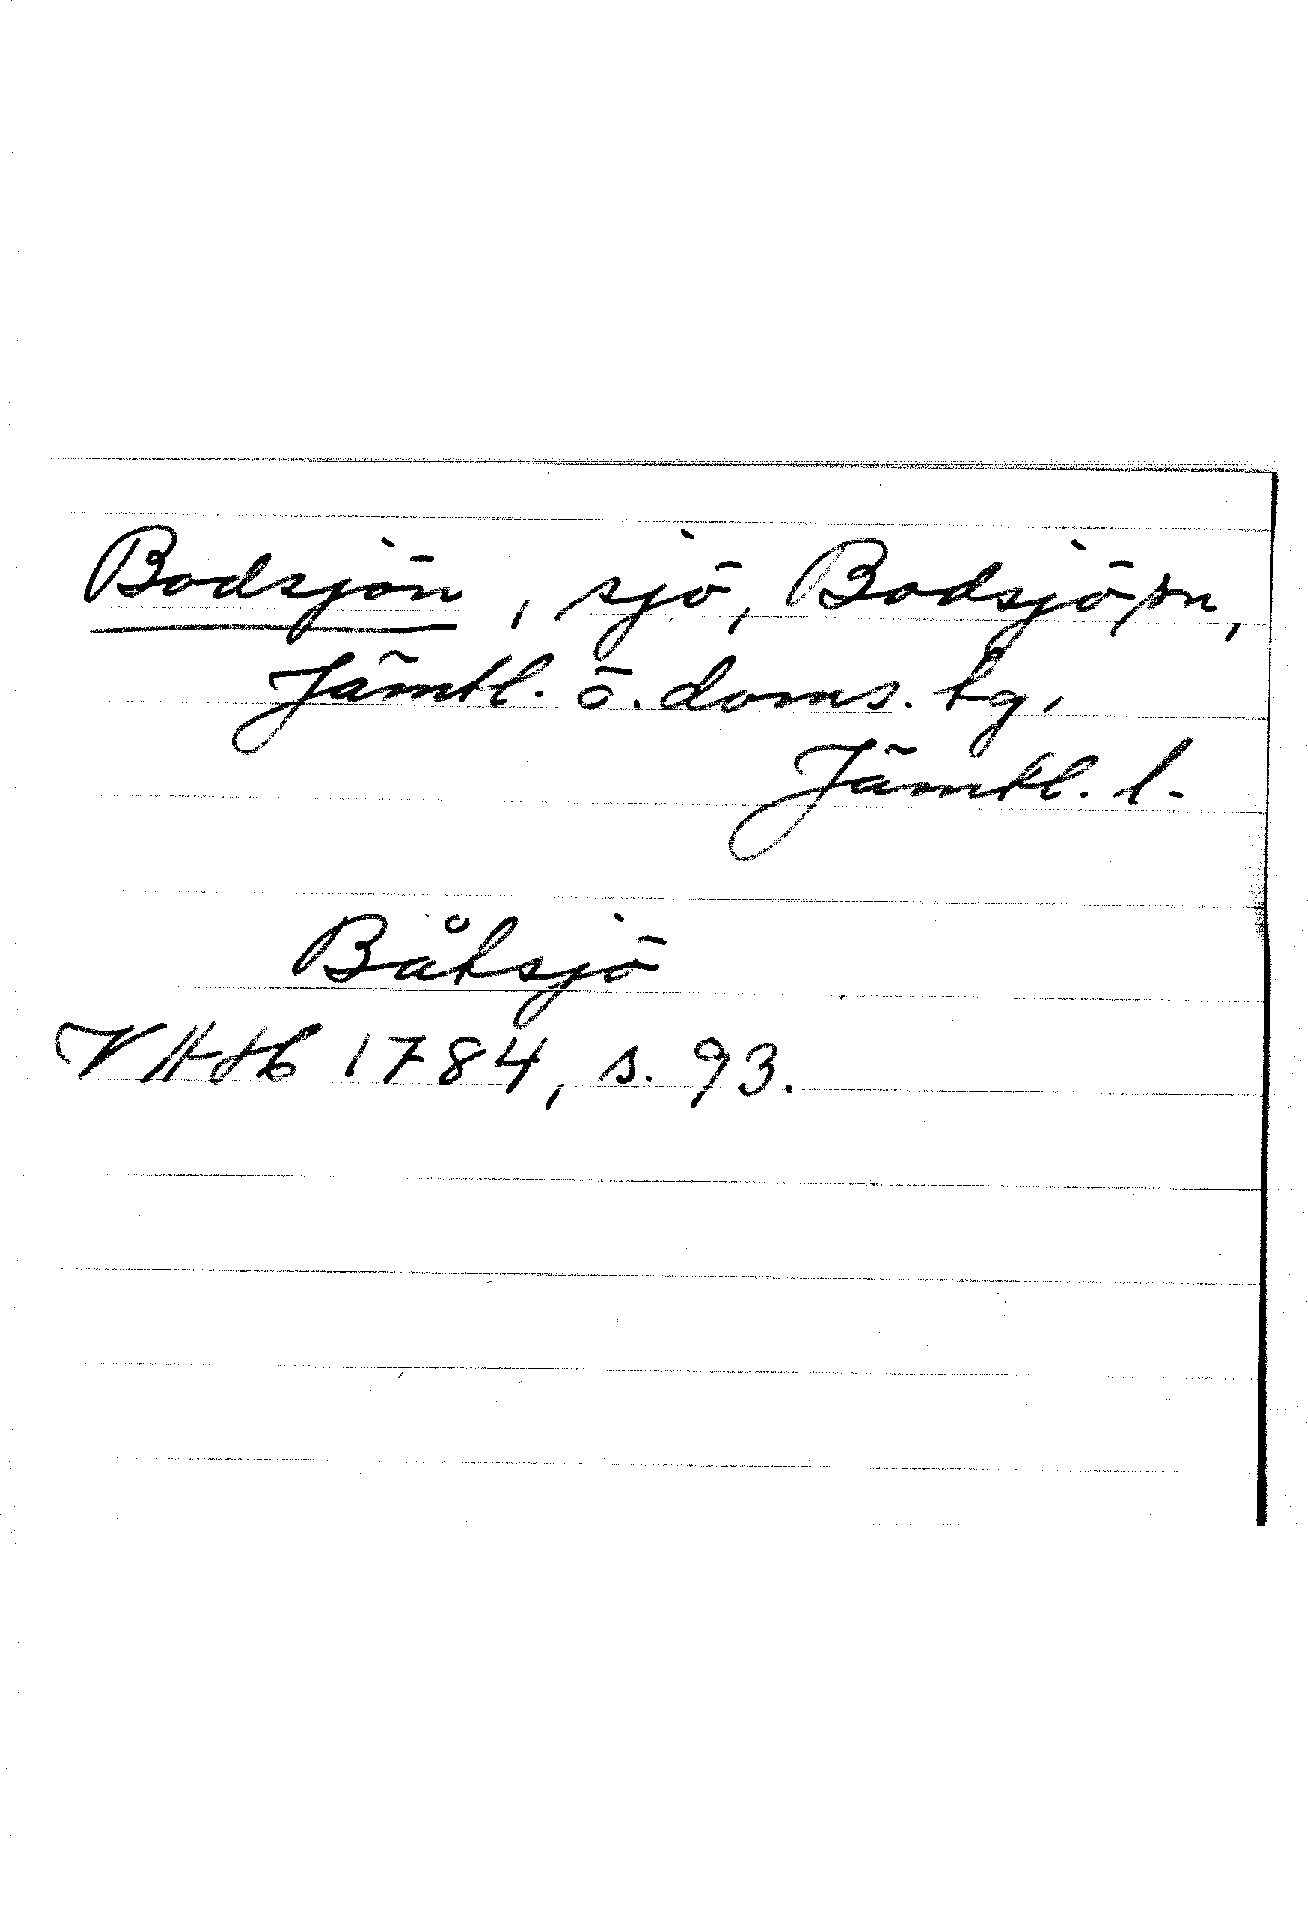 Bodsjön, sjö, Bodsjö sn,
Jämtl. ö. doms. tg,
Jämtl. l.
Båtsjö
VHAH 1784, s. 93.